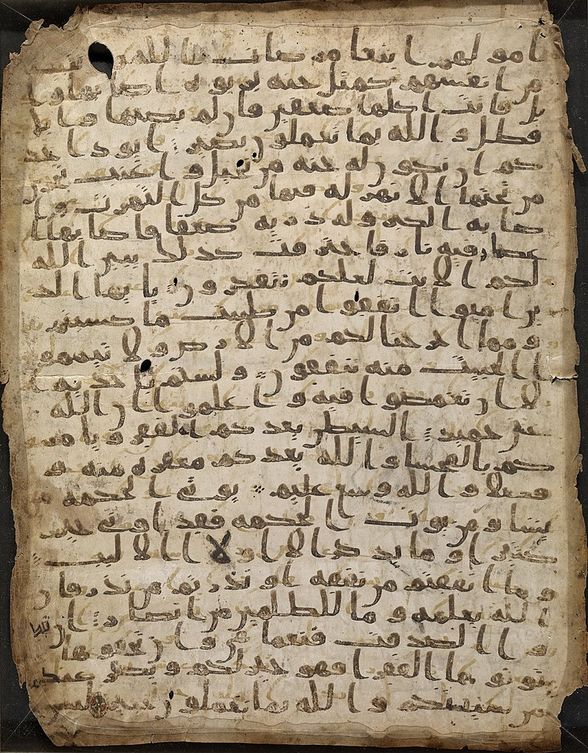 امولهم ابتغا مرضات الله وتثبيتا
من انفسهم كمثل جنة بربوة اصابها وا
بل فاتت اكلها ضعفين فان لم يصبها وابل
فطل والله بما تعملون بصير ايود احد
كم ان تكون له جنة من نخيل واعنب تجري
من تحتها الانهر له فيها من كل الثمرت وا
صابه الكبر وله ذرية ضعفا فاصابها ا
عصار فيه نار فاحترقت كذلك يبين الله
لكم الايت لعلكم تتفكرون يايها الذ
ين امنوا انفقوا من طيبت ما كسبتم
ومما اخرجنا لكم من الارض ولا تيممو
ا الخبيث منه تنفقون ولستم باخذيه ا
لا ان تغمضوا فيه واعلموا ان الله
غني حميد الشيطن يعدكم الفقر ويامر
كم بالفحشا والله يعدكم مغفرة منه و
فضلا والله وسع عليم يوتي الحكمة من
يشا ومن يوت الحكمة فقد اوتي خيرا
كثيرا وما يذكر الا اولوا الالبب
وما انفقتم من نفقة او نذرتم من نذر فان
الله يعلمه وما للظلمين من انصار ان تبد
وا الصدقت فنعما هي وان تخفوها و
توتوها الفقرا فهو خير لكم ويكفر عنكم
من سيتكم والله بما تعملون خبير ليس